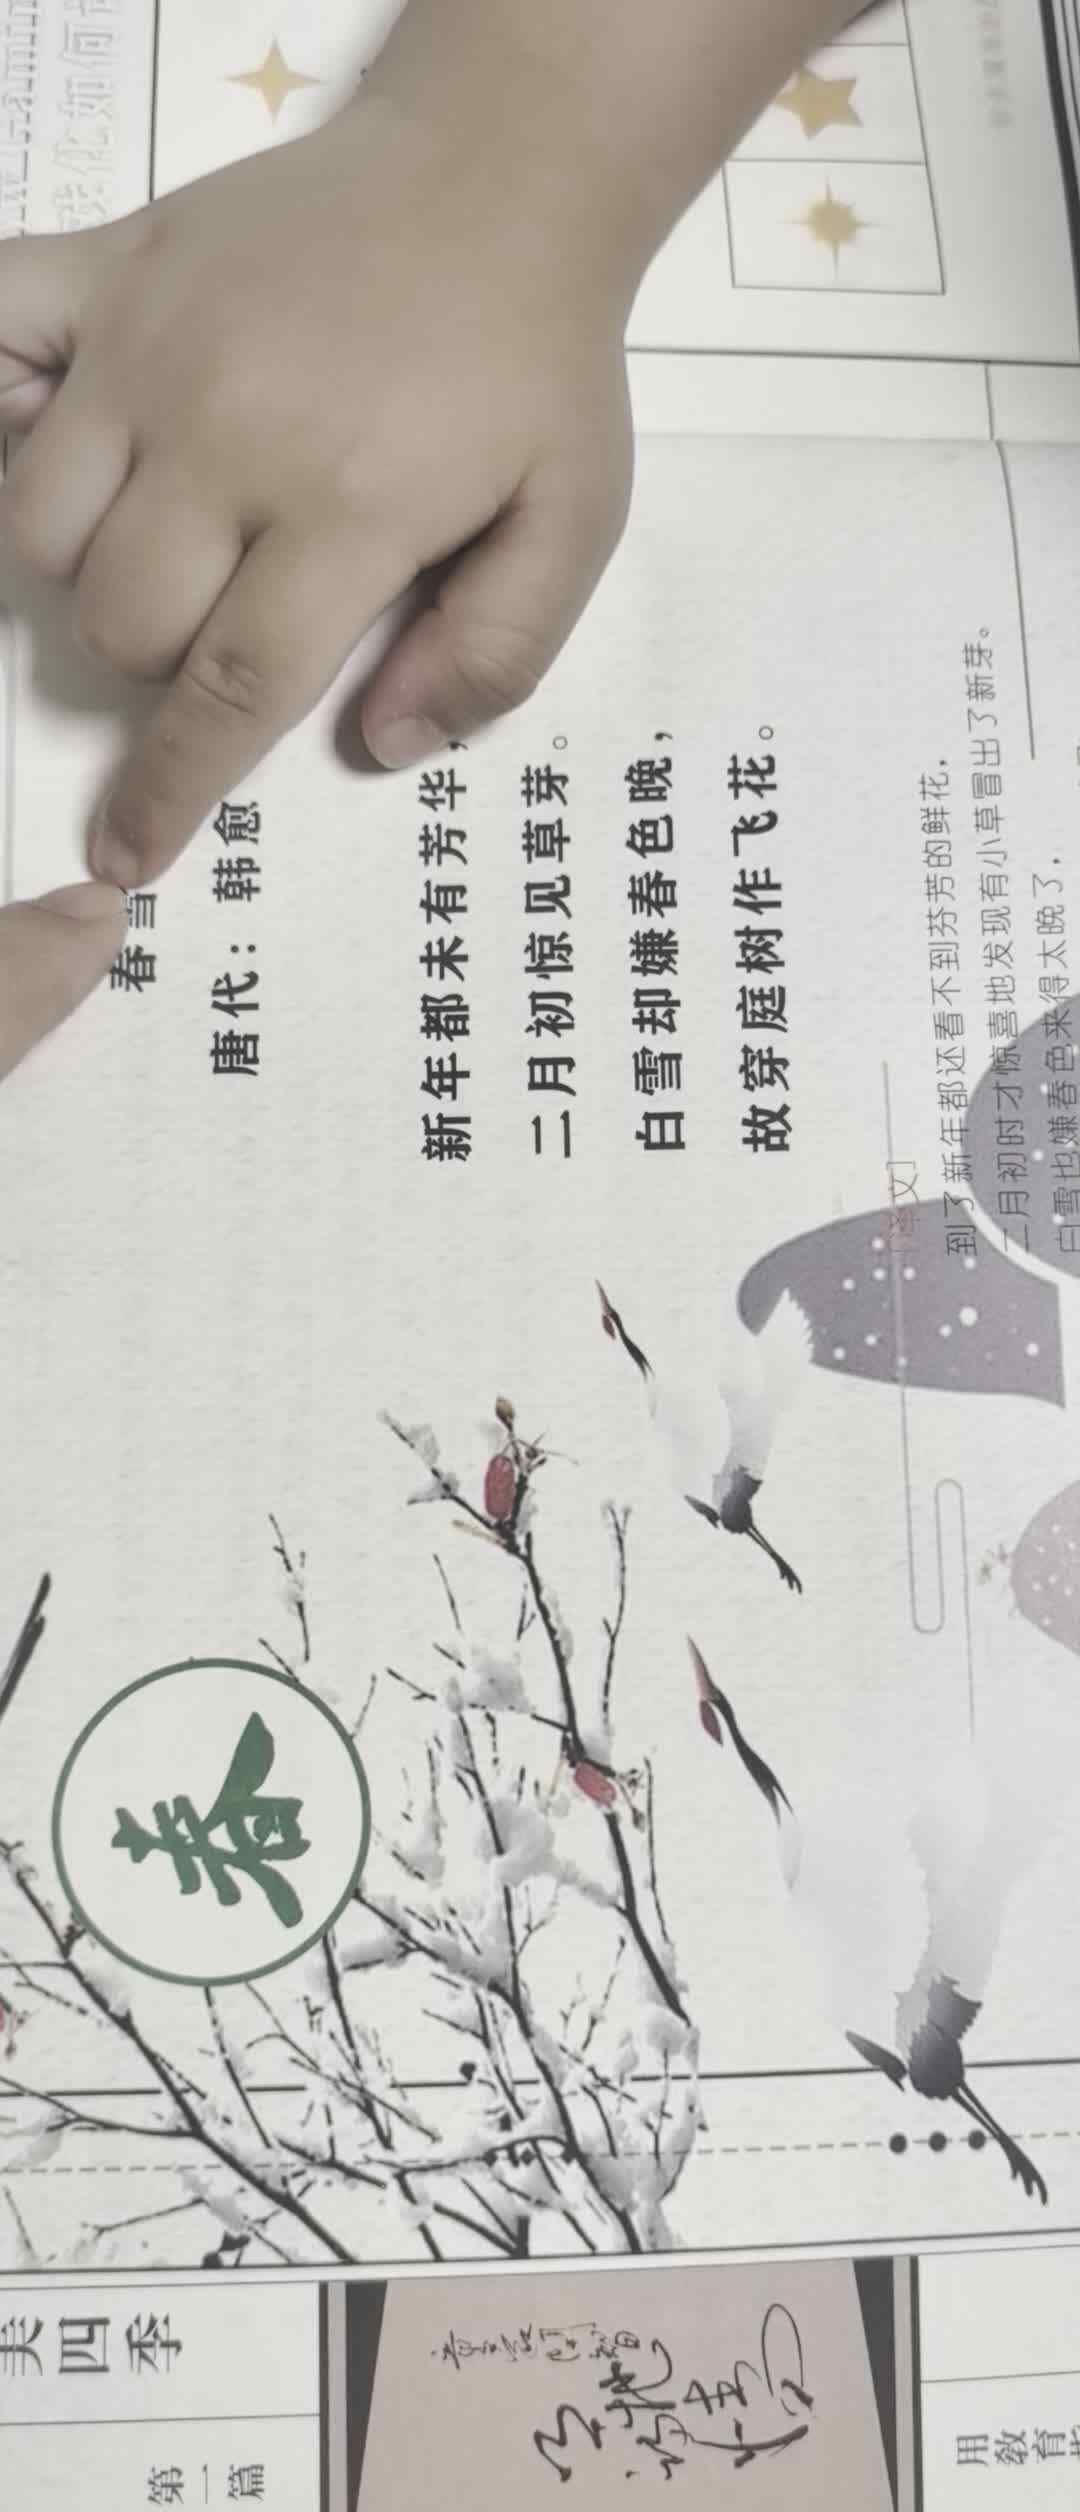 春雪
唐代：韩愈
新年都未有芳华，
二月初惊见草芽。
白雪却嫌春色晚，
故穿庭树作飞花。
[译文]
到了新年都还看不到芬芳的鲜花，
二月初时才惊喜地发现有小草冒出了新芽。
白雪也嫌春色来得太晚了，
春
美四季
第一篇
用教育